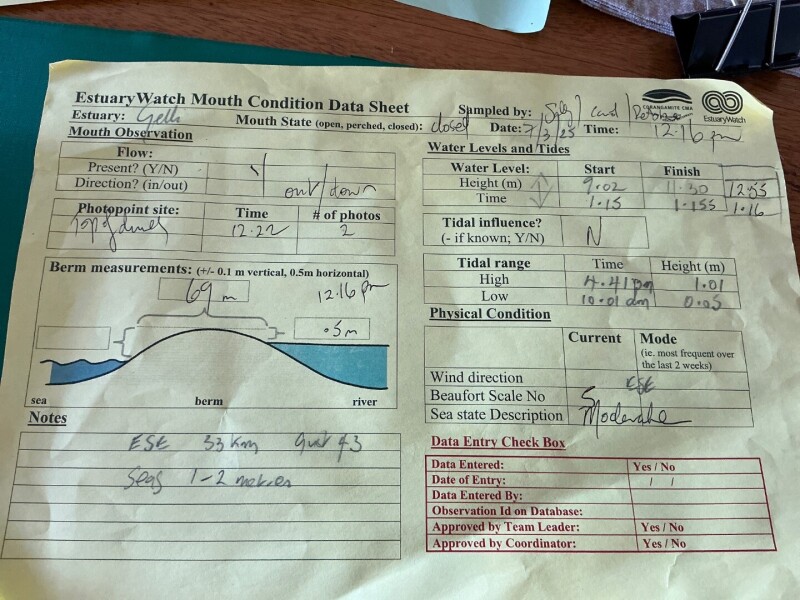 EstuaryWatch Mouth Condition Data Sheet
CORANGAMITE CMA
EstuaryWatch
Estuary: Gelli
Mouth State (open, perched, closed): closed
Sampled by:
Date: 7/3/25 Time: 12.16 pm
Mouth Observation
Flow:
Present? (Y/N)
Direction? (in/out) out/down
Photopoint site: Time # of photos
top of dunes 12.22 2
Berm measurements: (+/- 0.1 m vertical, 0.5m horizontal)
69 m 12.16 pm
.5m
sea berm river
Notes
ESE 33 km gust 43
Seas 1-2 metres
Water Levels and Tides
Water Level: Start Finish
Height (m) 9.02 11.30 1255
Time 1.15 1.155 1.16
Tidal influence?
(- if known; Y/N) N
Tidal range Time Height (m)
High 4.41pm 1.01
Low 10.01am 0.05
Physical Condition
Current Mode
(ie. most frequent over
the last 2 weeks)
Wind direction ESE
Beaufort Scale No 5
Sea state Description Moderate
Data Entry Check Box
Data Entered: Yes / No
Date of Entry: / /
Data Entered By:
Observation Id on Database:
Approved by Team Leader: Yes / No
Approved by Coordinator: Yes / No